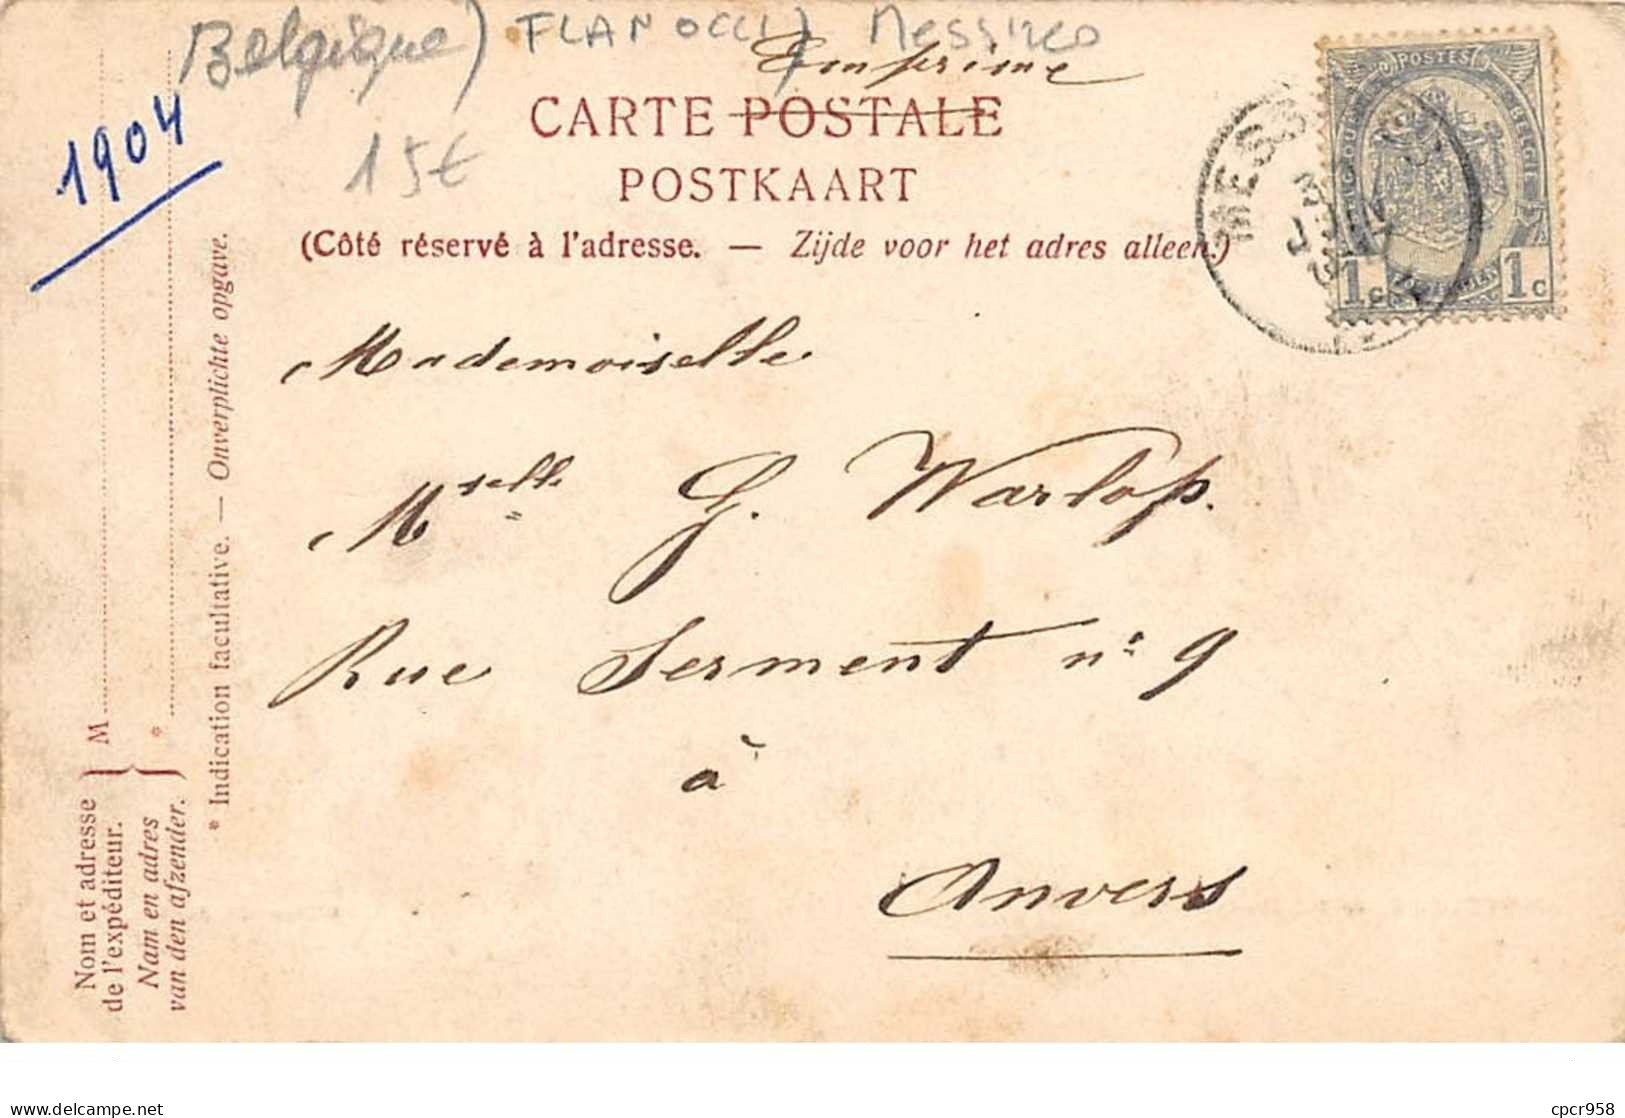 Belgique) FLAN OCC) Messines
Imprime
1904
15€
CARTE POSTALE
POSTKAART
(Côté réservé à l'adresse. — Zijde voor het adres alleen.)
POSTES
BELGIE
1c 1c
MESS
JUIN
Mademoiselle
Mselle G. Warlop.
Rue Serment n° 9
à
Anvers
Nom et adresse
de l'expéditeur.
Nam en adres
van den afzender.
M
*
* Indication facultative. — Onverplichte opgave.
cpcr958